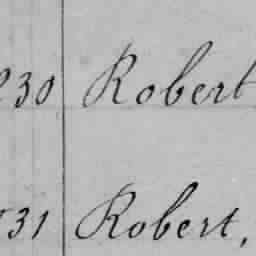 30 Robert
31 Robert,